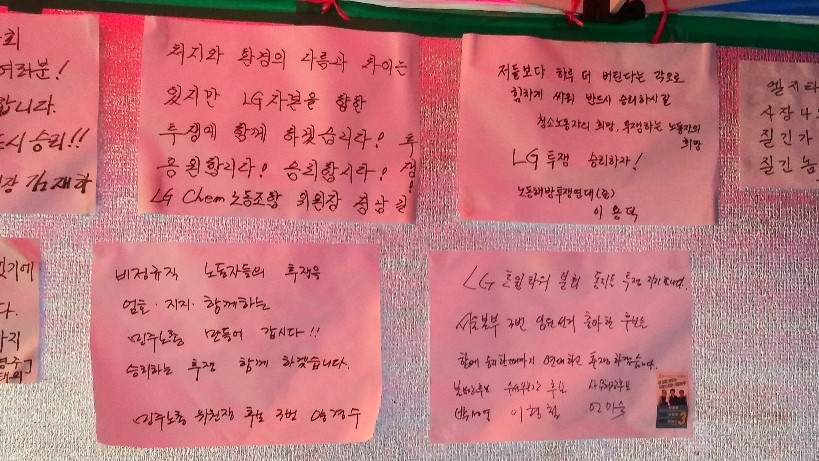 사회
여러분!
합니다.
드시 승리!!
장 김재하
처지와 환경의 다름과 차이는
있지만 LG자본을 향한
투쟁에 함께 하겠습니다! 투
응원합니다! 승리합시다! 쟁!
LG Chem 노동조합 위원장
저들보다 하루 더 버틴다는 각오로
힘차게 싸워 반드시 승리하시길
청소노동자의 희망, 투쟁하는 노동자의
희망
LG 투쟁 승리하자!
노동해방투쟁연대(준)
이용덕
엘지타
사장나오
질긴가
질긴놈
있기에
다.
까지
비정규직 노동자들의 투쟁을
엄호·지지·함께하는
민주노총 만들어 갑시다!!
승리하는 투쟁 함께 하겠습니다.
민주노총 위원장 후보 3번
LG 트윈타워 분회 동지들 투쟁 지지합니다.
서울본부 3번 임원선거 출마한 후보들
함께 승리할때까지 연대하고 투쟁하겠습니다.
후보
이형철
3